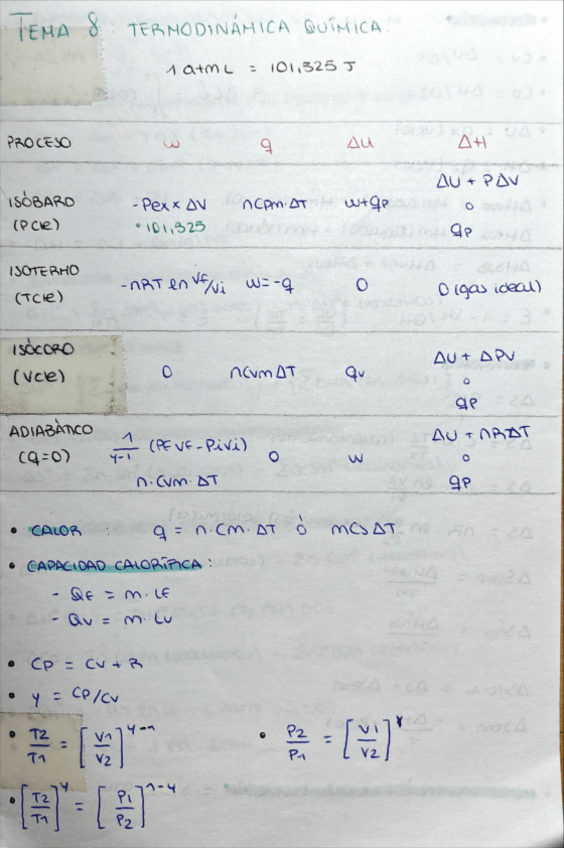 TEMA 8: TERMODINÁMICA QUÍMICA.
1 atm L = 101,325 J
PROCESO w q ΔU ΔH
ISÓBARO (PCte) -Pex x ΔV · 101,325 nCpm·ΔT w+qp ΔU + PΔV o qp
ISOTERMO (TCte) -nRT ln Vf/Vi w=-q 0 0 (gas ideal)
ISÓCORO (VCte) 0 nCvmΔT qv ΔU + ΔPV o qp
ADIABÁTICO (q=0) 1/γ-1 (PfVf-PiVi) n·Cvm·ΔT 0 w ΔU + nRΔT o qp
• CALOR: q = n·Cm·ΔT ó mCsΔT
• CAPACIDAD CALORÍFICA:
- Qf = m·Lf
- Qv = m·Lv
• Cp = Cv + R
• γ = Cp/Cv
• T2/T1 = [V1/V2]^γ-1 • P2/P1 = [V1/V2]^γ
• [T2/T1]^γ = [P1/P2]^1-γ